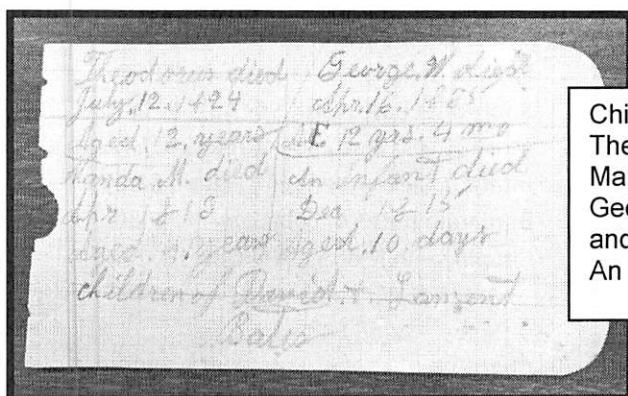 Theodorus died
July, 12, 1824
Aged, 12, years
Manda M. died
Apr 1813
Aged, 4, years
George, W. died
Apr. 16. 1825
AE 12 yrs. 4 mo
An infant died
Dec 1815
Aged, 10, days
children of David &
Bates
Chi
The
Ma
Geo
and
An